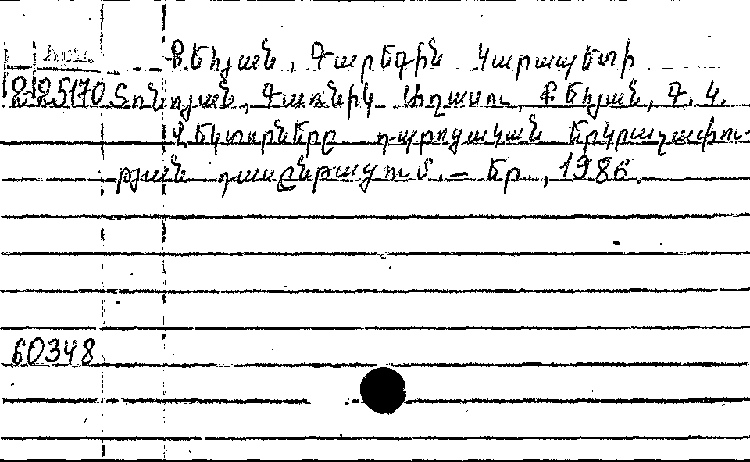 Քեհյան, Գարեգին Կարապետի
225170 Տոնոյան, Գառնիկ Աղասու, Քեհյան, Գ. Կ.
Վեկտորները դպրոցական երկրաչափու-
թյան դասընթացում. — Եր., 1986.
60348